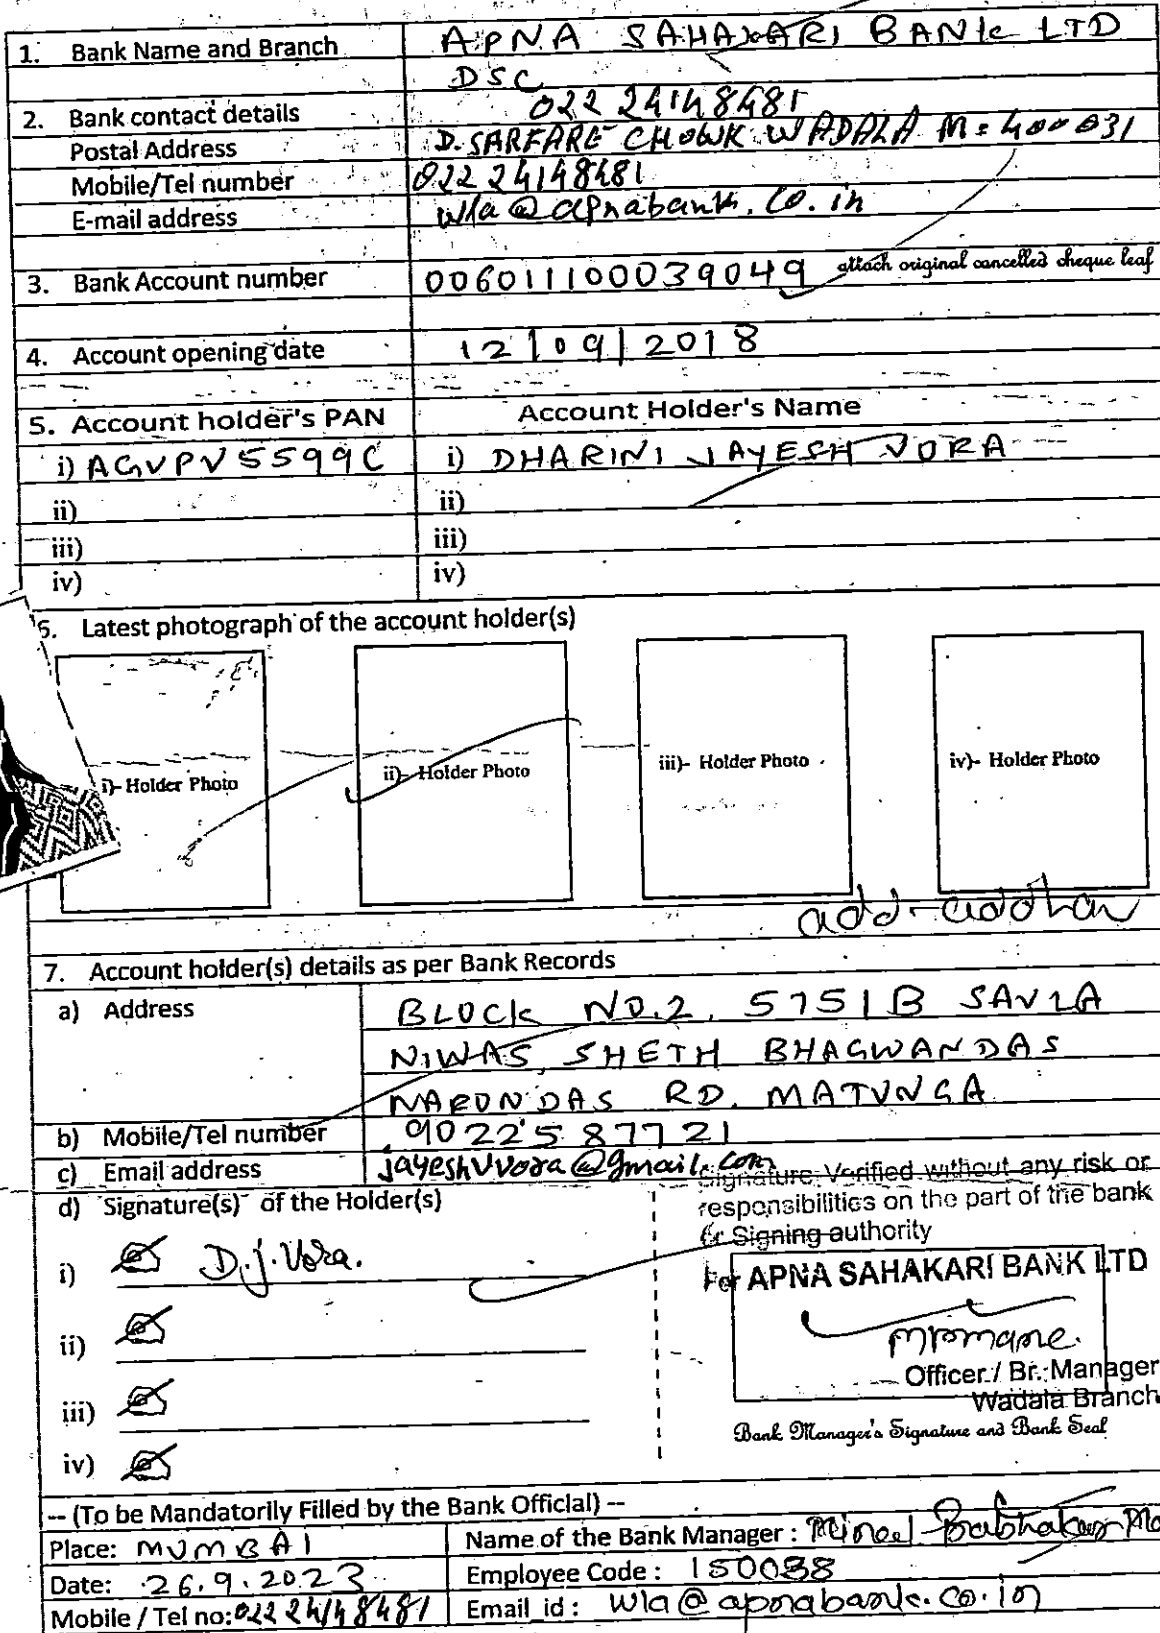 1. Bank Name and Branch APNA SAHAKARI BANK LTD
DSC
2. Bank contact details 022 24148481
Postal Address D. SARFARE CHOWK WADALA M=400031
Mobile/Tel number 022 24148481
E-mail address wla@apnabank.co.in
3. Bank Account number 006011100039049 attach original cancelled cheque leaf
4. Account opening date 12/09/2018
5. Account holder's PAN Account Holder's Name
i) AGVPV5599C i) DHARINI JAYESH VORA
ii) ii)
iii) iii)
iv) iv)
6. Latest photograph of the account holder(s)
i)- Holder Photo ii)- Holder Photo iii)- Holder Photo iv)- Holder Photo
add-aadhar
7. Account holder(s) details as per Bank Records
a) Address BLOCK NO.2, 5751B SAVLA
NIWAS, SHETH BHAGWANDAS
NARONDAS RD. MATUNGA
b) Mobile/Tel number 9022587721
c) Email address jayeshvvora@gmail.com
d) Signature(s) of the Holder(s)
Signature Verified without any risk or
responsibilities on the part of the bank
or Signing authority
i) D.j.Vora.
For APNA SAHAKARI BANK LTD
ii)
mpmane.
Officer / Br. Manager
Wadala Branch
iii)
Bank Manager's Signature and Bank Seal
iv)
-- (To be Mandatorily Filled by the Bank Official) --
Place: MUMBAI Name of the Bank Manager: Prabhakar
Date: 26.9.2023 Employee Code: 150038
Mobile / Tel no: 022 24148481 Email id: wla@apnabank.co.in